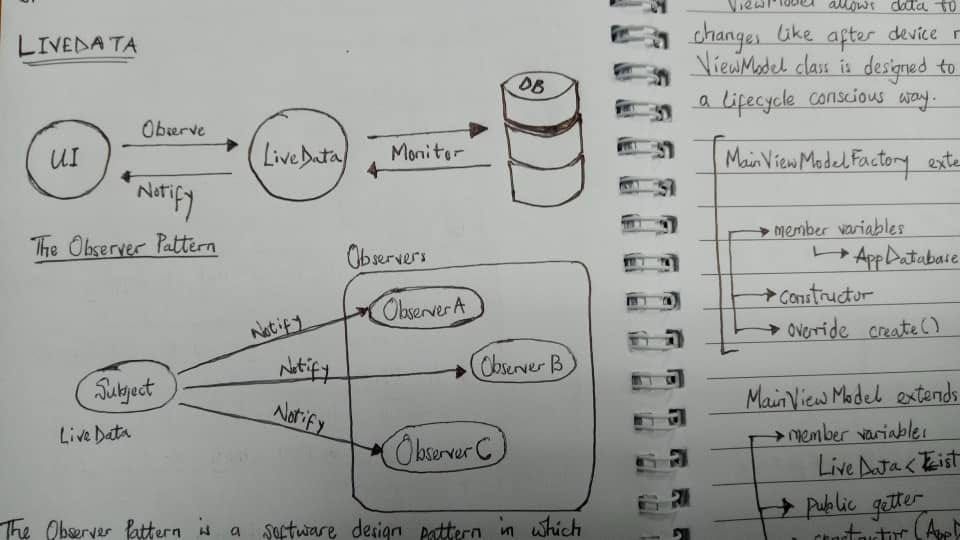 LIVEDATA
UI
Observe
Notify
LiveData
Monitor
DB
The Observer Pattern
Observers
Subject
LiveData
Notify
Notify
Notify
Observer A
Observer B
Observer C
The Observer Pattern is a software design pattern in which
ViewModel allows data to
changes like after device
ViewModel class is designed to
a lifecycle conscious way.
MainViewModelFactory
member variables
AppDatabase
constructor
override create()
MainViewModel extends
member variables
LiveData<List
public getter
constructor (App